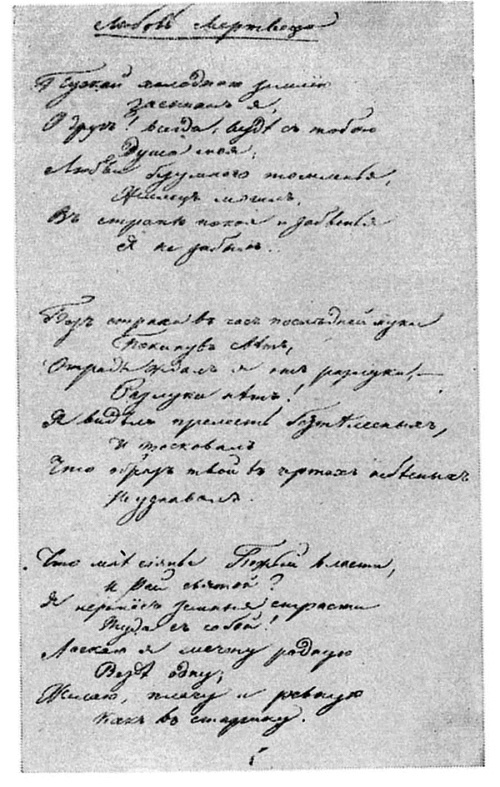 Любовь Мертвеца
Пускай холодною землею
Засыпанъ я,
О другъ! всегда, вездѣ съ тобою
Душа моя.
Любви безумнаго томленья,
Жилецъ могилъ,
Въ странѣ покоя и забвенья
Я не забылъ.
Безъ страха въ часъ послѣдней муки
Покинувъ свѣтъ,
Отрады ждалъ я отъ разлуки, —
Разлуки нѣтъ!
Я видѣлъ прелесть безтѣлесныхъ,
И тосковалъ
Что образъ твой въ чертахъ небесныхъ
Не узнавалъ.
Что мнѣ сіянье Божьей власти,
И Рай святой?
Я перенёсъ земныя страсти
Туда съ собой!
Ласкаю я мечту родную
Вездѣ одну;
Желаю, плачу и ревную
Какъ въ старину.